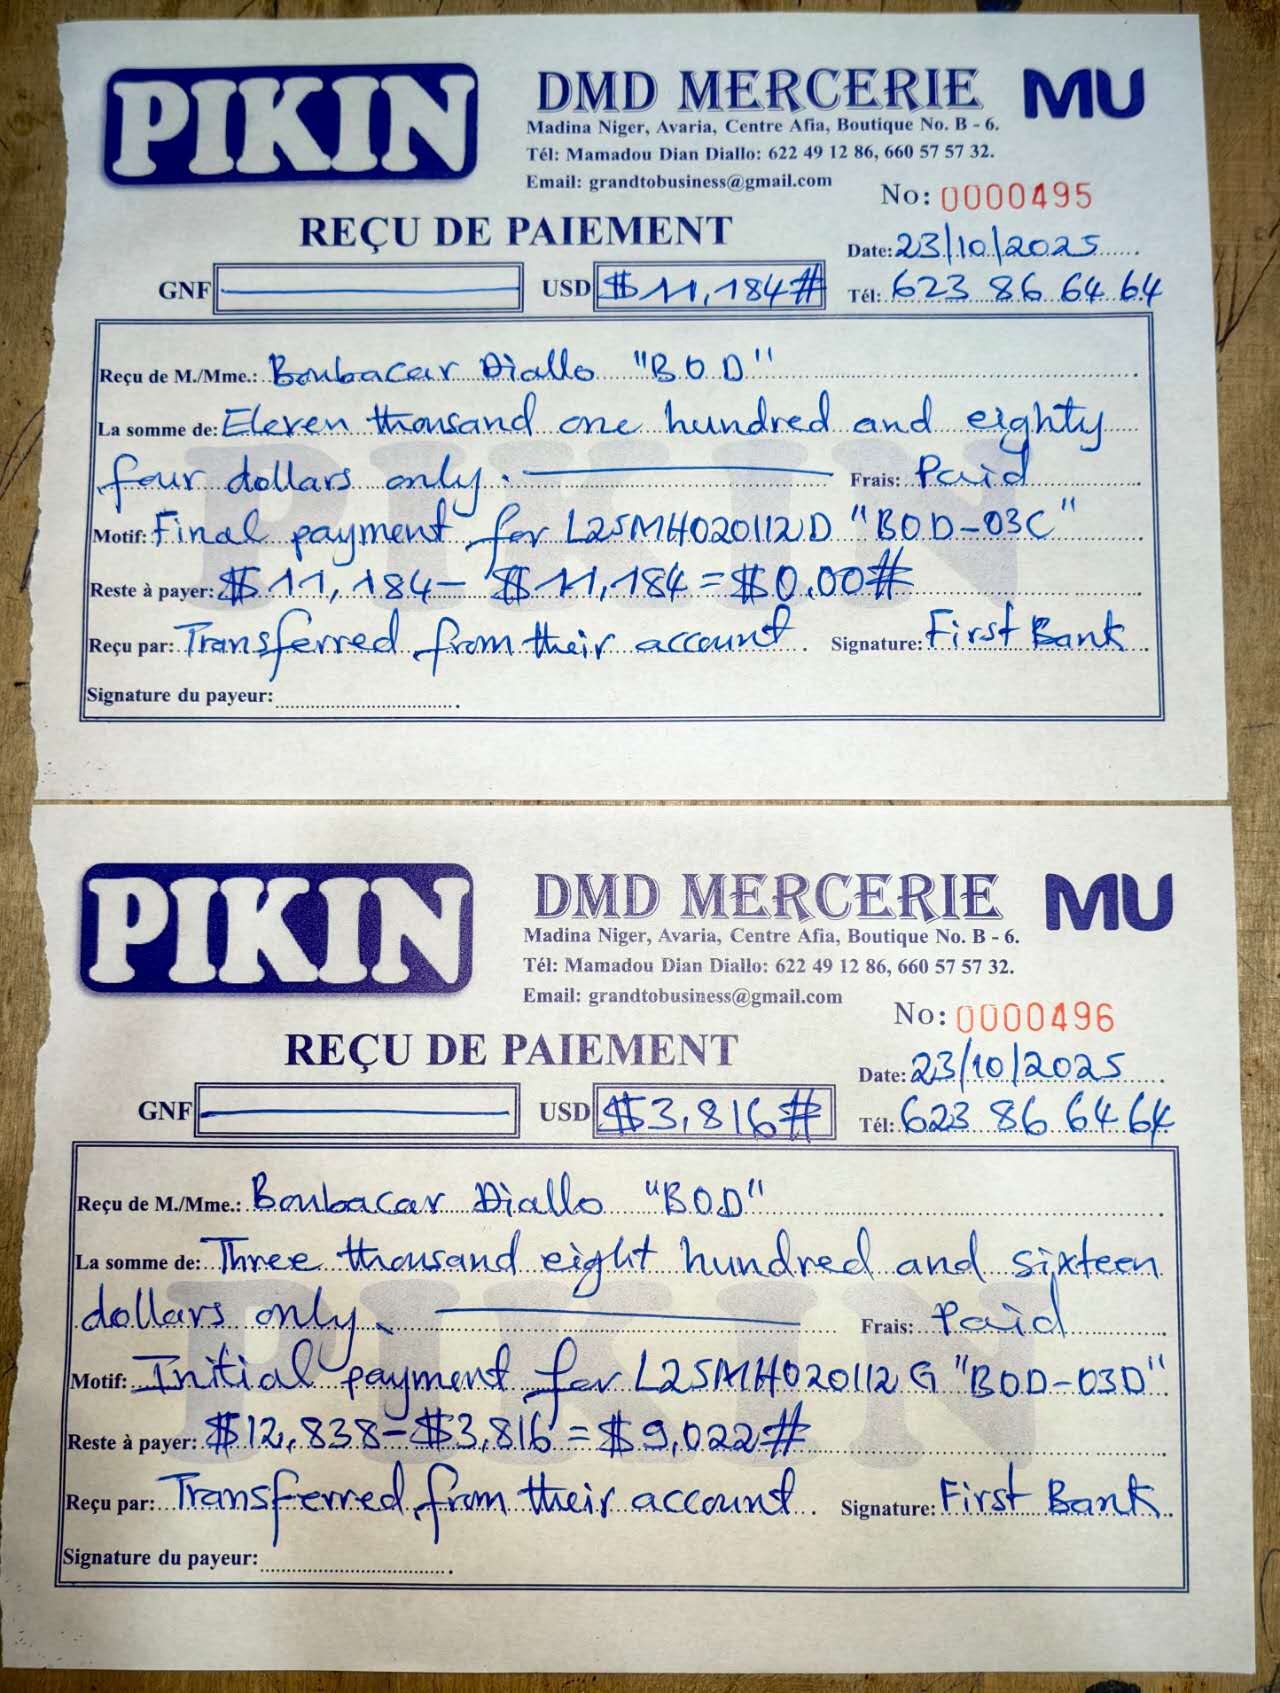 PIKIN
DMD MERCERIE MU
Madina Niger, Avaria, Centre Afia, Boutique No. B - 6.
Tél: Mamadou Dian Diallo: 622 49 12 86, 660 57 57 32.
Email: grandtobusiness@gmail.com
No: 0000495
REÇU DE PAIEMENT
Date: 23/10/2025
GNF USD $11,184# Tél: 623 86 64 64
Reçu de M./Mme.: Boubacar Diallo "BOD"
La somme de: Eleven thousand one hundred and eighty
four dollars only. Frais: Paid
Motif: Final payment for L25MH020112D "BOD-03C"
Reste à payer: $11,184 - $11,184 = $0.00#
Reçu par: Transferred from their account Signature: First Bank
Signature du payeur:
PIKIN
PIKIN
DMD MERCERIE MU
Madina Niger, Avaria, Centre Afia, Boutique No. B - 6.
Tél: Mamadou Dian Diallo: 622 49 12 86, 660 57 57 32.
Email: grandtobusiness@gmail.com
No: 0000496
REÇU DE PAIEMENT
Date: 23/10/2025
GNF USD $3,816# Tél: 623 86 64 64
Reçu de M./Mme.: Boubacar Diallo "BOD"
La somme de: Three thousand eight hundred and sixteen
dollars only. Frais: Paid
Motif: Initial payment for L25MH020112G "BOD-03D"
Reste à payer: $12,838 - $3,816 = $9,022#
Reçu par: Transferred from their account Signature: First Bank
Signature du payeur:
PIKIN